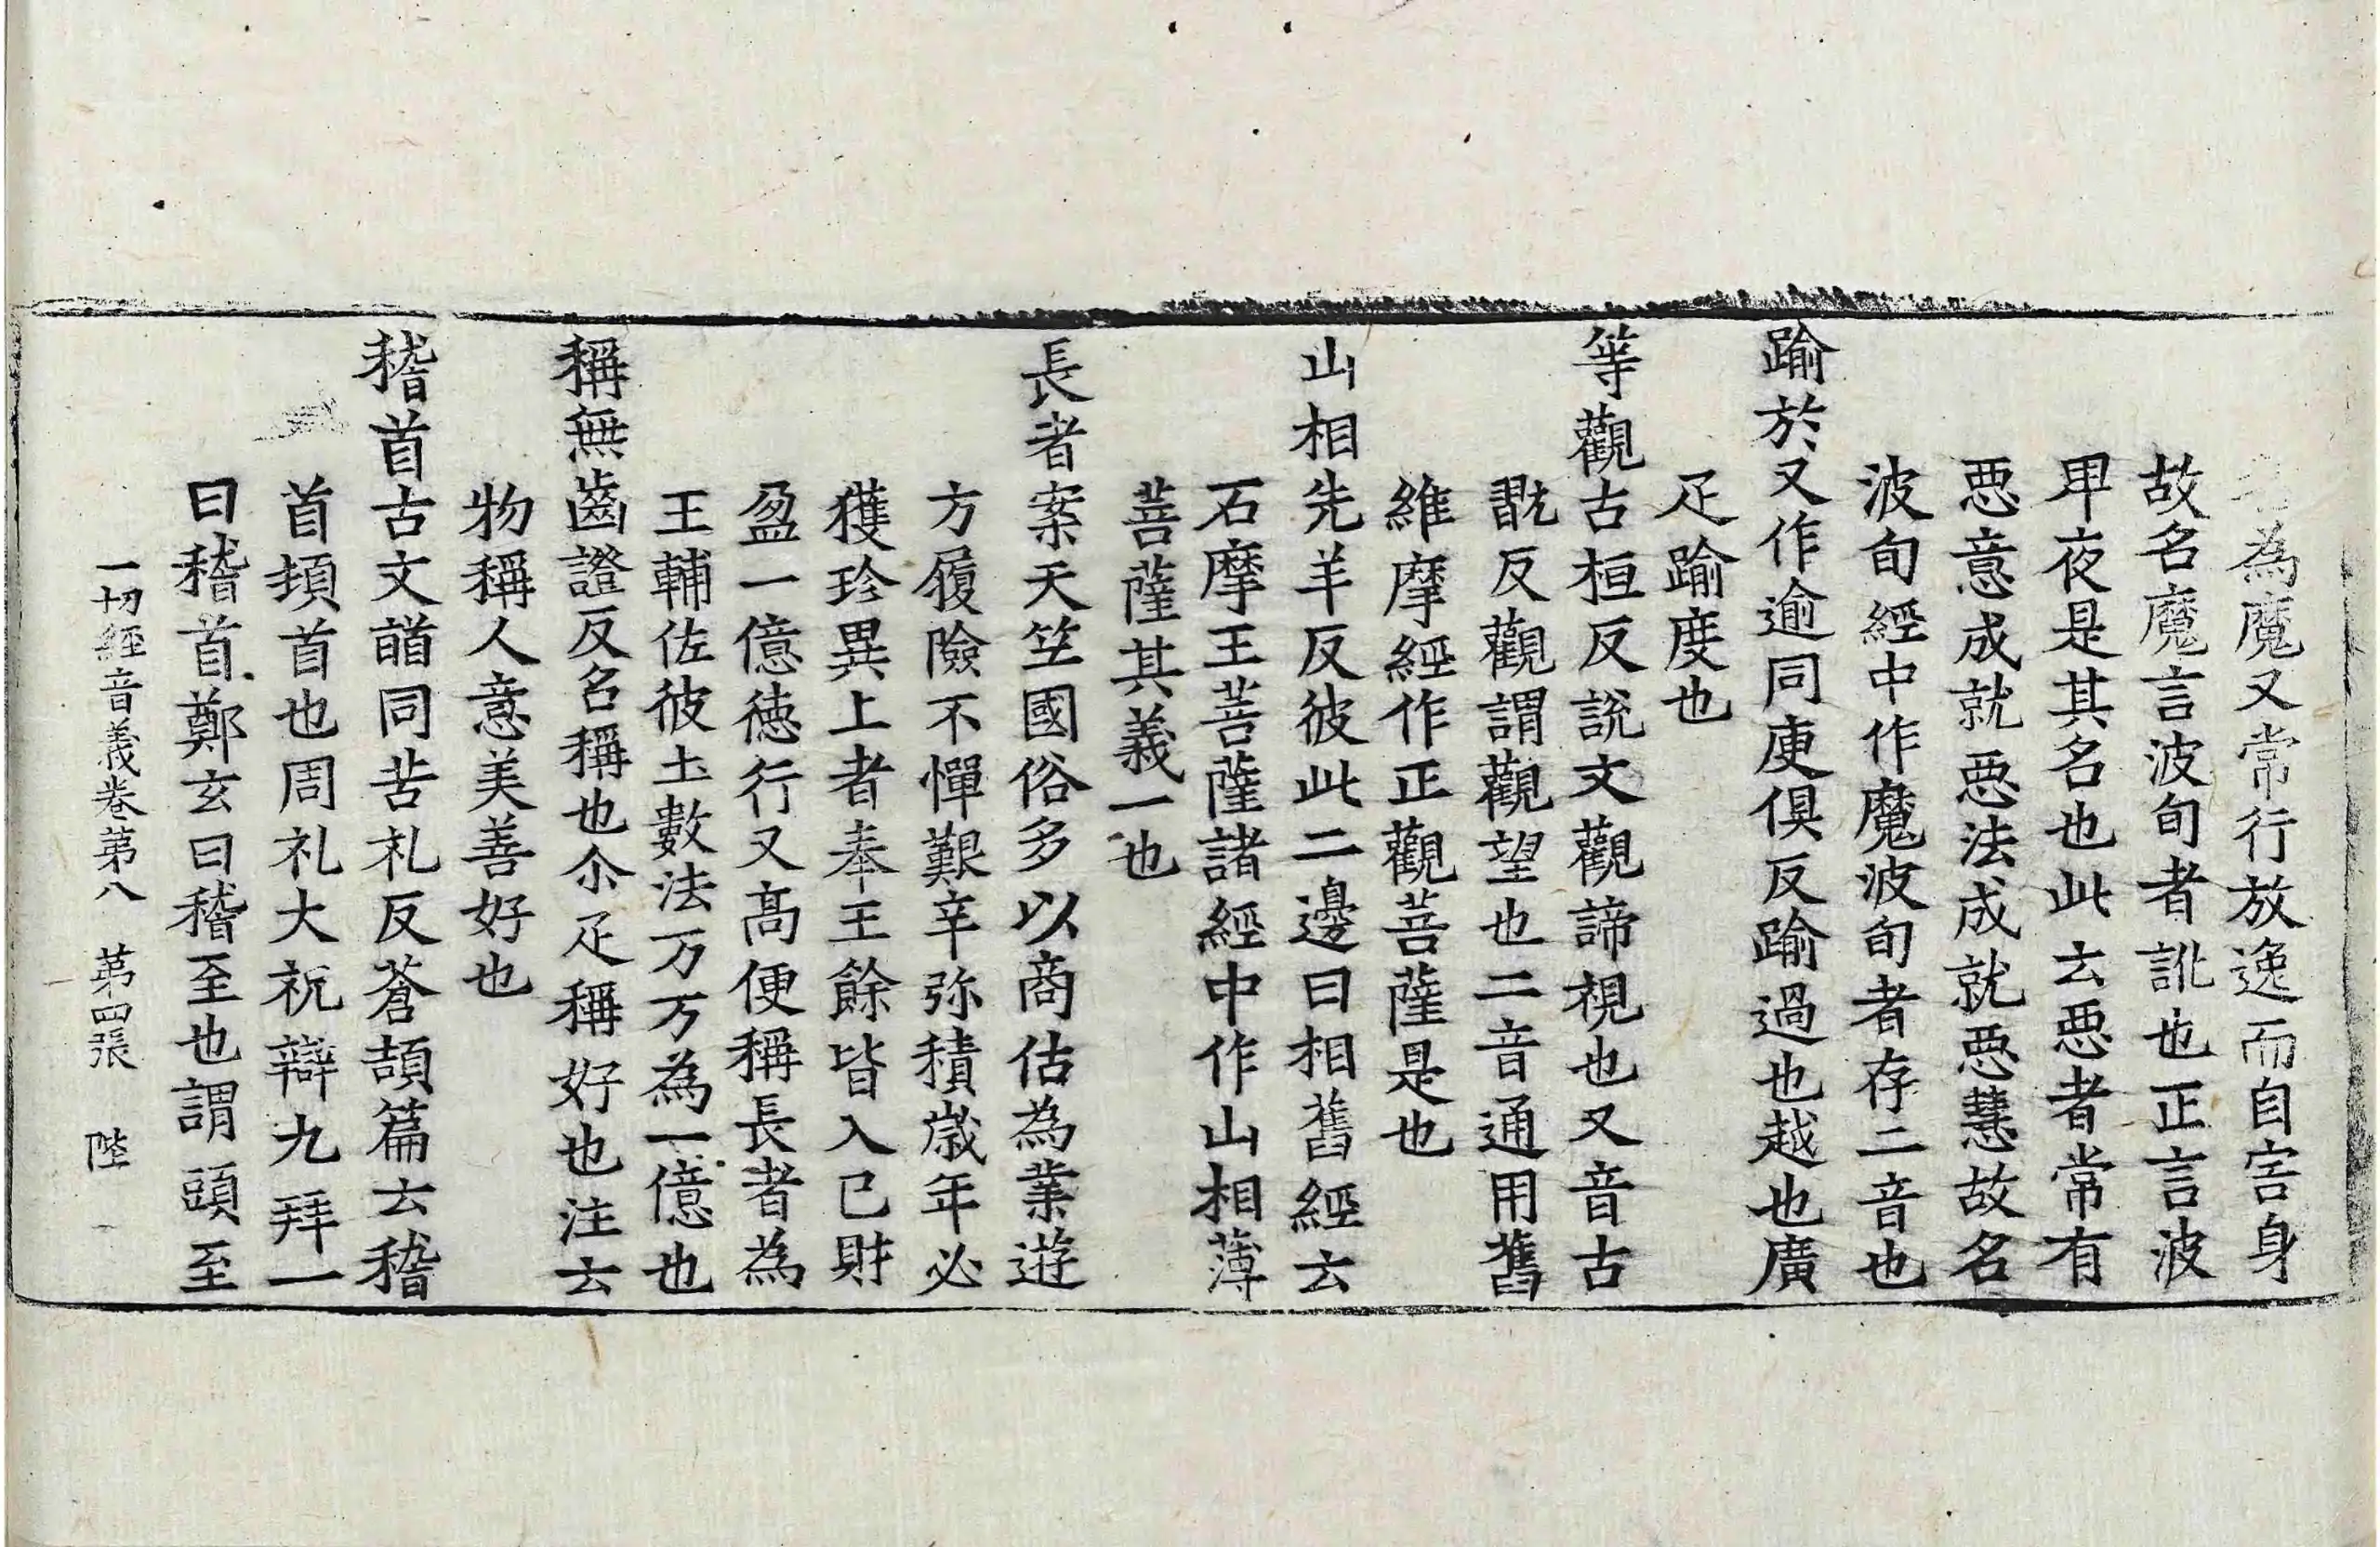 為魔又常行放逸而自害身
故名魔言波旬者訛也正言波
甲夜是其名也此云惡者常有
惡意成就惡法成就惡慧故名
波旬經中作魔波旬者存二音也
踰於又作逾同庾俱反踰過也越也廣
疋踰度也
等觀古桓反說文觀諦視也又音古
翫反觀謂觀望也二音通用舊
維摩經作正觀菩薩是也
山相先羊反彼此二邊曰相舊經云
石摩王菩薩諸經中作山相薄
菩薩其義一也
長者案天笁國俗多以商估為業遊
方履險不憚艱辛弥積歲年必
獲珍異上者奉王餘皆入己財
盈一億德行又高便稱長者為
王輔佐彼土數法万万為一億也
稱無齒證反名稱也尒疋稱好也注云
物稱人意美善好也
稽首古文䭫同苦礼反蒼頡篇云稽
首頓首也周礼大祝辯九拜一
曰稽首鄭玄曰稽至也謂頭至
一切經音義卷第八 第四張 陛